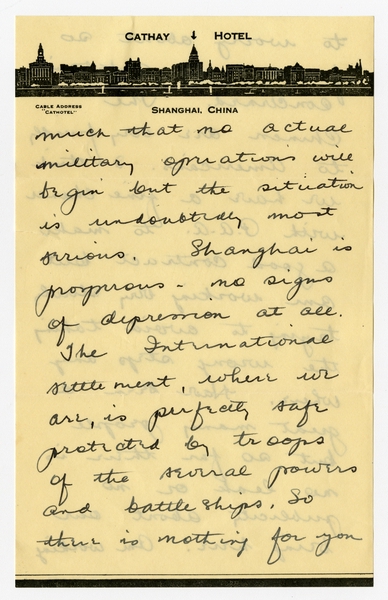 CATHAY HOTEL
CABLE ADDRESS
"CATHOTEL"
SHANGHAI, CHINA
much that no actual
military operations will
begin but the situation
is undoubtedly most
serious. Shanghai is
prosperous - no signs
of depression at all.
The International
settlement, where we
are, is perfectly safe
protected by troops
of the several powers
and battleships. So
there is nothing for you